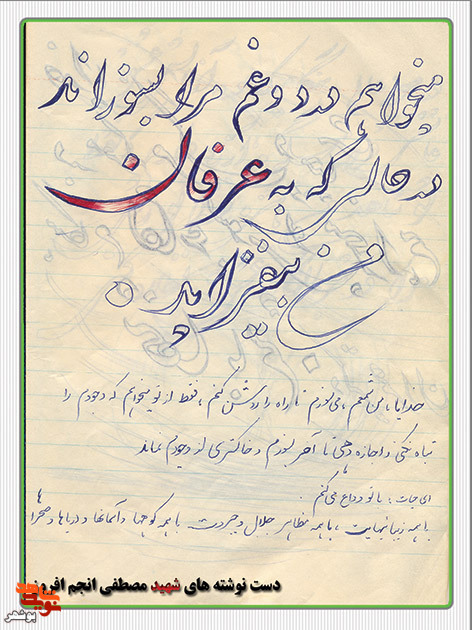 میخواهم درد و غم مرا بسوزاند
در حالی که به عرفان
من بیفزاید.
خدایا، من شمعم، می‌سوزم تا راه را روشن کنم، فقط از تو میخواهم که وجودم را
تباه نکنی و اجازه دهی تا آخر بسوزم و خاکستری از وجودم نماند
ای حیات: با تو وداع می‌کنم.
با همه زیبائیهایت، با همه مظاهر جلال و جبروت، با همه کوهها و آسمانها و دریاها و صحراها
دست نوشته های شهید مصطفی انجم افروز
نوید شاهد
بوشهر